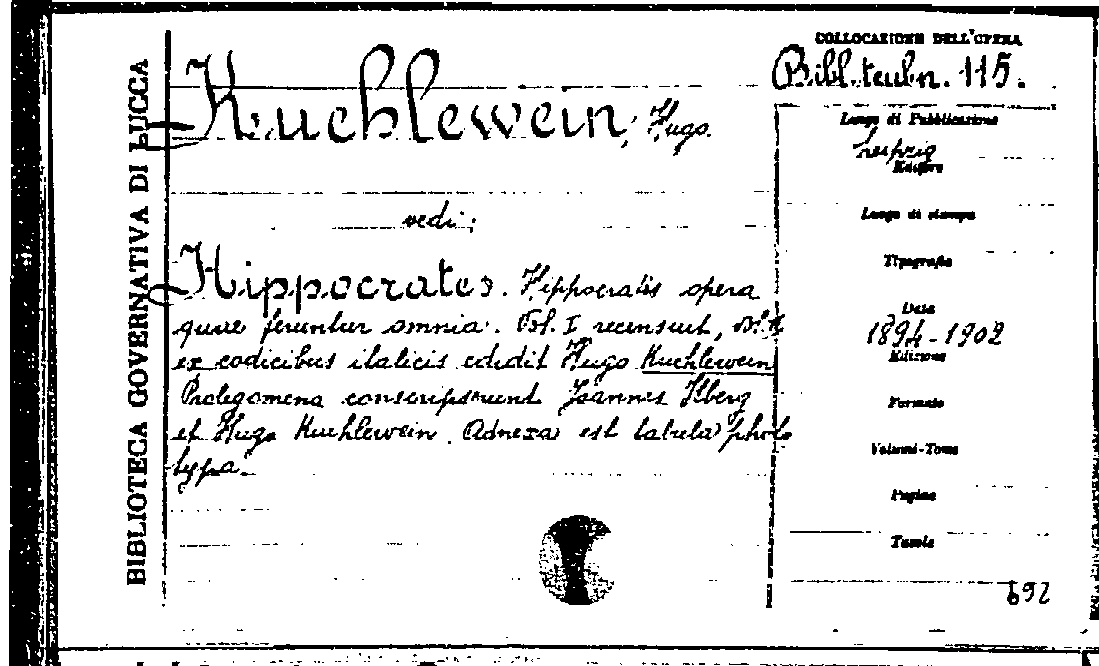 BIBLIOTECA GOVERNATIVA DI LUCCA
Kuehlewein, Hugo.
vedi:
Hippocrates. Hippocratis opera
quae feruntur omnia. Vol. I recensuit, Vol. II
ex codicibus italicis edidit Hugo Kuehlewein
Prolegomena conscripserunt Joannes Ilberg
et Hugo Kuehlewein. Adnexa est tabula photo
typa.
COLLOCAZIONE DELL'OPERA
Bibl. teubn. 115.
Luogo di Pubblicazione
Leipzig
Editore
Luogo di stampa
Tipografia
Data
1894-1902
Edizione
Formato
Volumi-Tomo
Pagine
Tavole
692